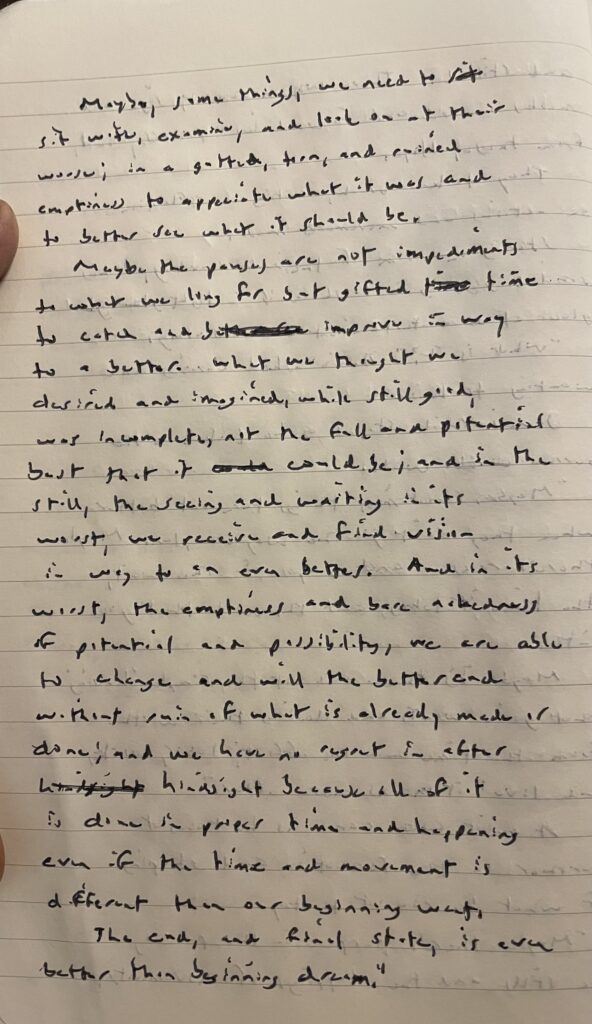 Maybe, some things, we need to sit
sit with, examine, and look on at their
worse; in a gutted, torn, and ruined
emptiness to appreciate what it was and
to better see what it should be.
Maybe the pauses are not impediments
to what we long for but gifted time time
to catch and improve in way
to a better. What we thought we
desired and imagined, while still good,
was incomplete, not the full and potential
best that it could could be; and in the
still, the seeing and waiting in its
worst, we receive and find vision
in way to an even better. And in its
worst, the emptiness and bare nakedness
of potential and possibility, we are able
to change and will the better end
without ruin of what is already made or
done; and we have no regret in after
hindsight hindsight because all of it
is done in proper time and happening
even if the time and movement is
different than our beginning want.
The end, and final state, is even
better than beginning dream."